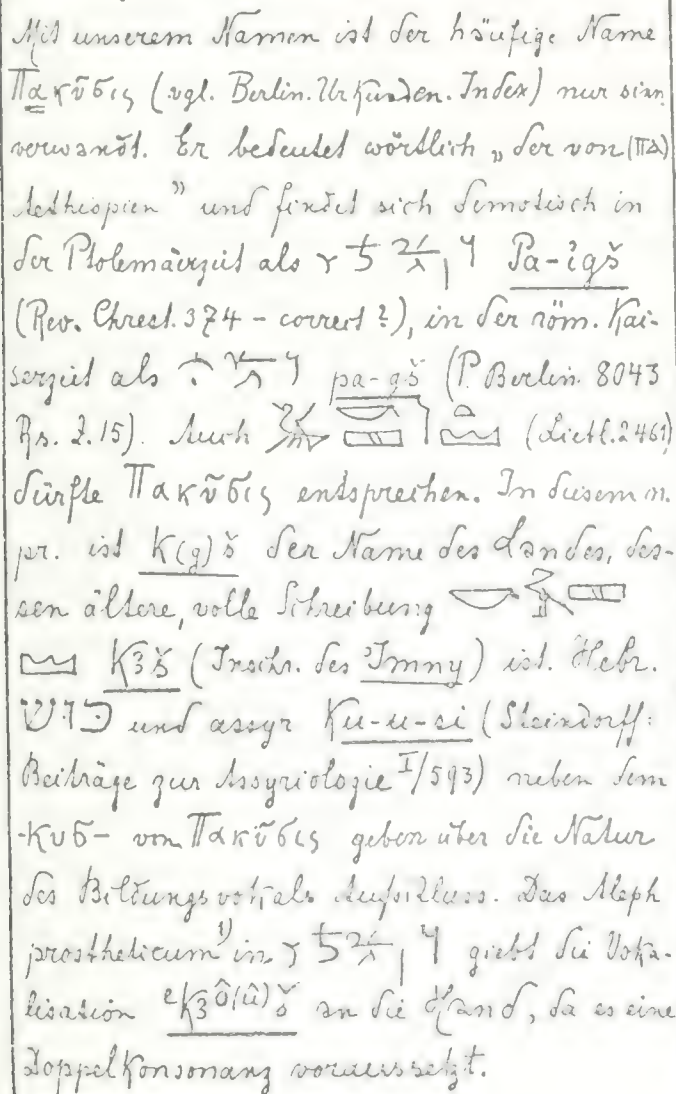 Mit unserem Namen ist der häufige Name
Πακῦσις (vgl. Berlin. Urkunden. Index) nur sinn
verwandt. Er bedeutet wörtlich „der von (ΠΑ)
Aethiopien" und findet sich demotisch in
der Ptolemäerzeit als Pa-igš
(Rev. Chrest. 374 - correct?), in der röm. Kai-
serzeit als pa-gš (P. Berlin. 8043
Rs. Z. 15). Auch (Liebl. 2461)
dürfte Πακῦσις entsprechen. In diesem n.
pr. ist K(g)š der Name des Landes, des-
sen ältere, volle Schreibung
K3š (Inschr. des Imny) ist. Hebr.
כוש und assyr Ku-u-si (Steindorff:
Beiträge zur Assyriologie I/593) neben dem
-κυσ- von Πακῦσις geben über die Natur
des Bildungsvokals Aufschluss. Das Aleph
prostheticum 1) in giebt die Voka-
lisation eK3ô(û)š an die Hand, da es eine
Doppelkonsonanz voraussetzt.